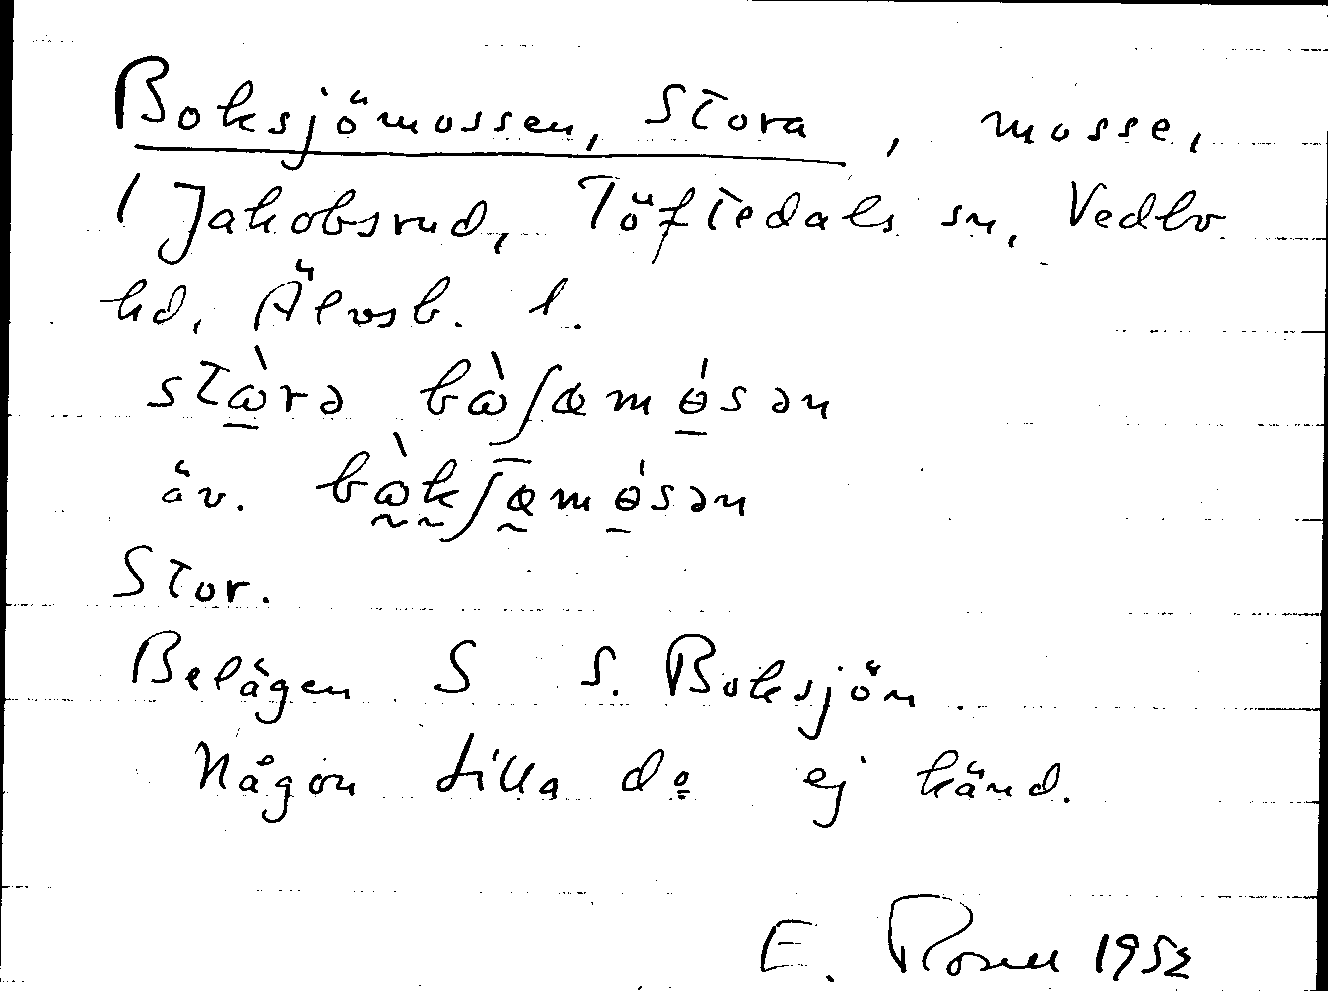 Boksjömossen, Stora, mosse,
1 Jakobsrud, Töftedals sn, Vedbo
hd, Älvsb. l.
stὼrə bὼʃɷmɵ́sən
äv. bὼkʃɷmɵ́sən
Stor.
Belägen S S. Boksjön.
Någon Lilla do ej känd.
E. Rosell 1952